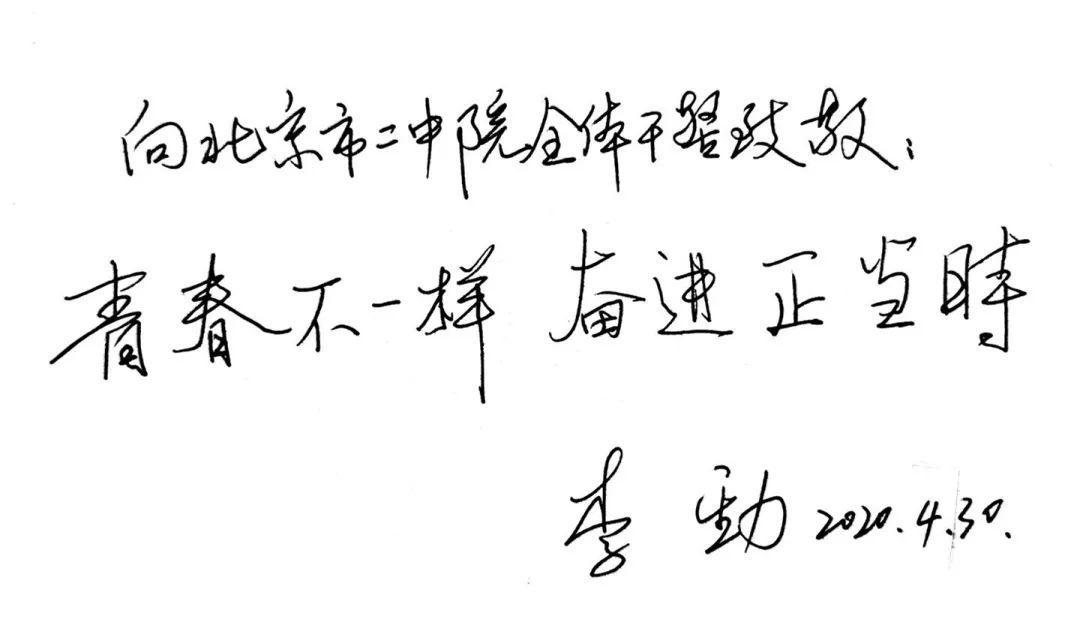 向北京市二中院全体干警致敬：
青春不一样 奋进正当時
李 2020.4.30.